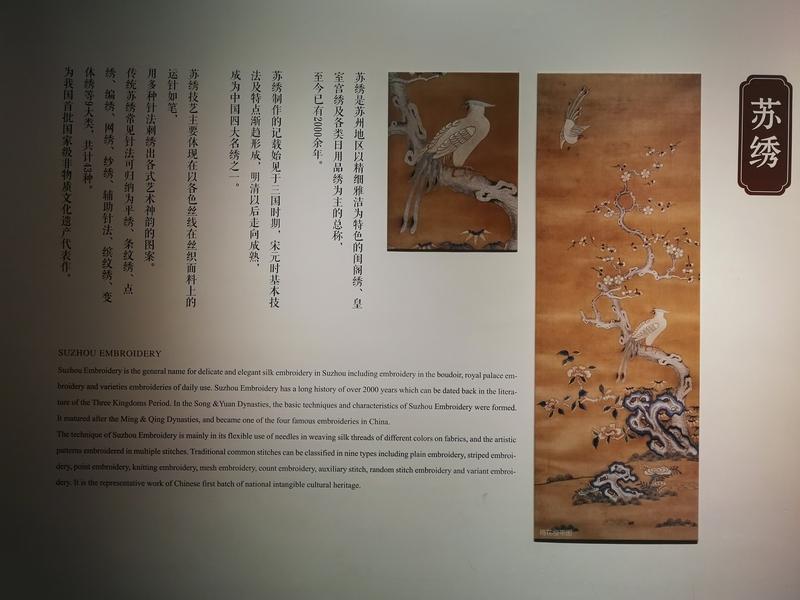 苏绣
苏绣是苏州地区以精细雅洁为特色的闺阁绣、皇
室宫绣及各类日用品绣为主的总称，
至今已有2000余年。
苏绣制作的记载始见于三国时期，宋元时基本技
法及特点渐趋形成，明清以后走向成熟，
成为中国四大名绣之一。
苏绣技艺主要体现在以各色丝线在丝织面料上的
运针如笔，
用多种针法刺绣出各式艺术神韵的图案。
传统苏绣常见针法可归纳为平绣、条纹绣、点
绣、编绣、网绣、纱绣、辅助针法、缤纹绣、变
体绣等9大类，共计43种。
为我国首批国家级非物质文化遗产代表作。
SUZHOU EMBROIDERY
Suzhou Embroidery is the general name for delicate and elegant silk embroidery in Suzhou including embroidery in the boudoir, royal palace em-
broidery and varieties embroideries of daily use. Suzhou Embroidery has a long history of over 2000 years which can be dated back in the litera-
ture of the Three Kingdoms Period. In the Song &Yuan Dynasties, the basic techniques and characteristics of Suzhou Embroidery were formed.
It matured after the Ming & Qing Dynasties, and became one of the four famous embroideries in China.
The technique of Suzhou Embroidery is mainly in its flexible use of needles in weaving silk threads of different colors on fabrics, and the artistic
patterns embroidered in multiple stitches. Traditional common stitches can be classified in nine types including plain embroidery, striped embroi-
dery, point embroidery, knitting embroidery, mesh embroidery, count embroidery, auxiliary stitch, random stitch embroidery and variant embroi-
dery. It is the representative work of Chinese first batch of national intangible cultural heritage.